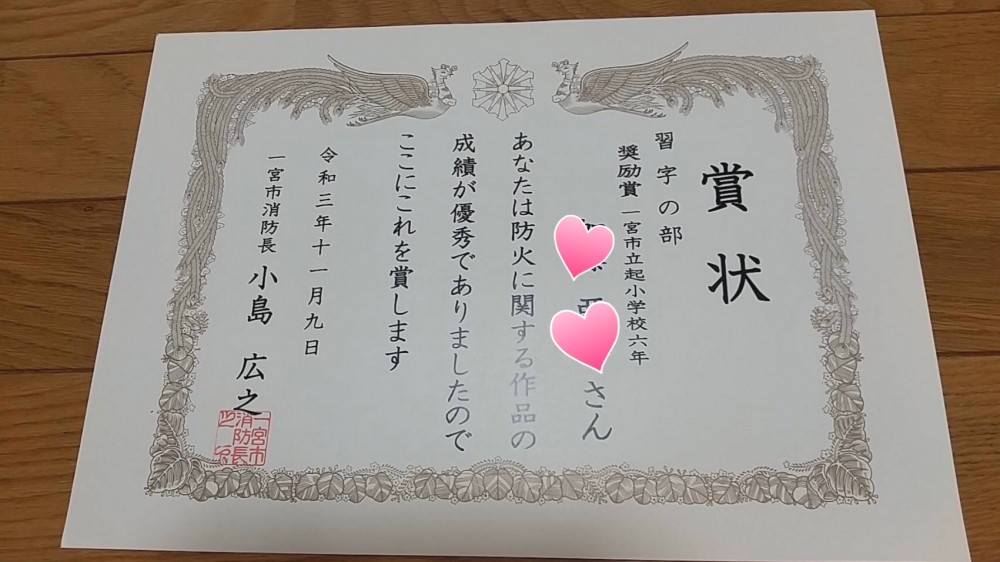 賞状
習字の部
奨励賞 一宮市立起小学校六年
さん
あなたは防火に関する作品の
成績が優秀でありましたので
ここにこれを賞します
令和三年十一月九日
一宮市消防長 小島 広之
一宮市
消防長